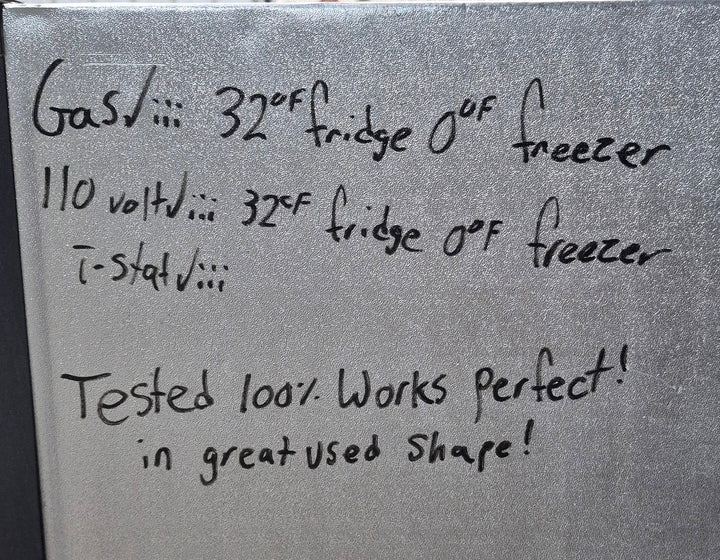 Gas√::: 32°F fridge 0°F freezer
110 volt√::: 32°F fridge 0°F freezer
T-stat√:::
Tested 100% Works Perfect!
in great used Shape!